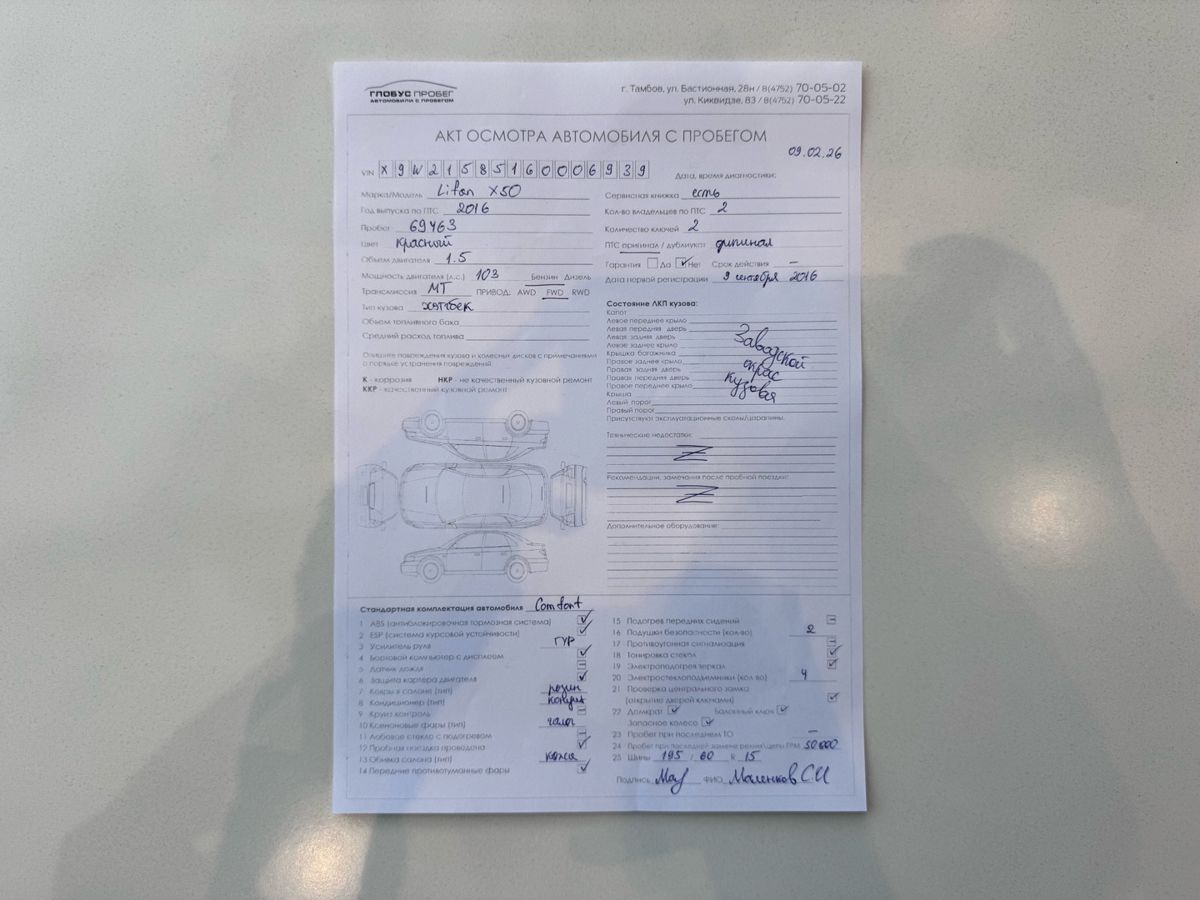 ГЛОБУС ПРОБЕГ
АВТОМОБИЛИ С ПРОБЕГОМ
г. Тамбов, ул. Бастионная, 28н / 8(4752) 70-05-02
ул. Киквидзе, 83 / 8(4752) 70-05-22
АКТ ОСМОТРА АВТОМОБИЛЯ С ПРОБЕГОМ
09.02.26
VIN X9W21585160006939
Дата, время диагностики:
Марка/Модель Lifan X50
Год выпуска по ПТС 2016
Пробег 69463
Цвет красный
Объем двигателя 1.5
Мощность двигателя (л.с.) 103 Бензин Дизель
Трансмиссия МТ ПРИВОД: AWD FWD RWD
Тип кузова хэтчбек
Объем топливного бака
Средний расход топлива
Опишите повреждения кузова и колесных дисков с примечаниями
о порядке устранения повреждений.
К - коррозия НКР - не качественный кузовной ремонт
ККР - качественный кузовной ремонт
Сервисная книжка есть
Кол-во владельцев по ПТС 2
Количество ключей 2
ПТС оригинал / дубликат
Гарантия Да ✓ Нет Срок действия –
Дата первой регистрации 9 сентября 2016
Состояние ЛКП кузова:
Капот
Левое переднее крыло
Левая передняя дверь
Левая задняя дверь
Левое заднее крыло
Крышка багажника
Правое заднее крыло
Правая задняя дверь
Правая передняя дверь
Правое переднее крыло
Крыша
Левый порог
Правый порог
Заводской
окрас
кузова
Присутствуют эксплуатационные сколы/царапины.
Технические недостатки:
Z
Рекомендации, замечания после пробной поездки:
Z
Дополнительное оборудование:
Стандартная комплектация автомобиля Comfort
1 ABS (антиблокировочная тормозная система) ✓
2 ESP (система курсовой устойчивости) ✓
3 Усилитель руля ГУР
4 Бортовой компьютер с дисплеем ✓
5 Датчик дождя –
6 Защита картера двигателя ✓
7 Ковры в салоне (тип) резин
8 Кондиционер (тип) кондиц
9 Круиз контроль –
10 Ксеноновые фары (тип) галог
11 Лобовое стекло с подогревом –
12 Пробная поездка проведена ✓
13 Обивка салона (тип) кожа
14 Передние противотуманные фары ✓
15 Подогрев передних сидений –
16 Подушки безопасности (кол-во) 2
17 Противоугонная сигнализация –
18 Тонировка стекол ✓
19 Электроподогрев зеркал ✓
20 Электростеклоподъемники (кол-во) 4
21 Проверка центрального замка
(открытие дверей ключами) ✓
22 Домкрат ✓ Балонный ключ ✓
Запасное колесо ✓
23 Пробег при последнем ТО –
24 Пробег при последней замене ремня/цепи ГРМ 50 000
25 Шины 195 / 60 R 15
Подпись ФИО Маленков С.И